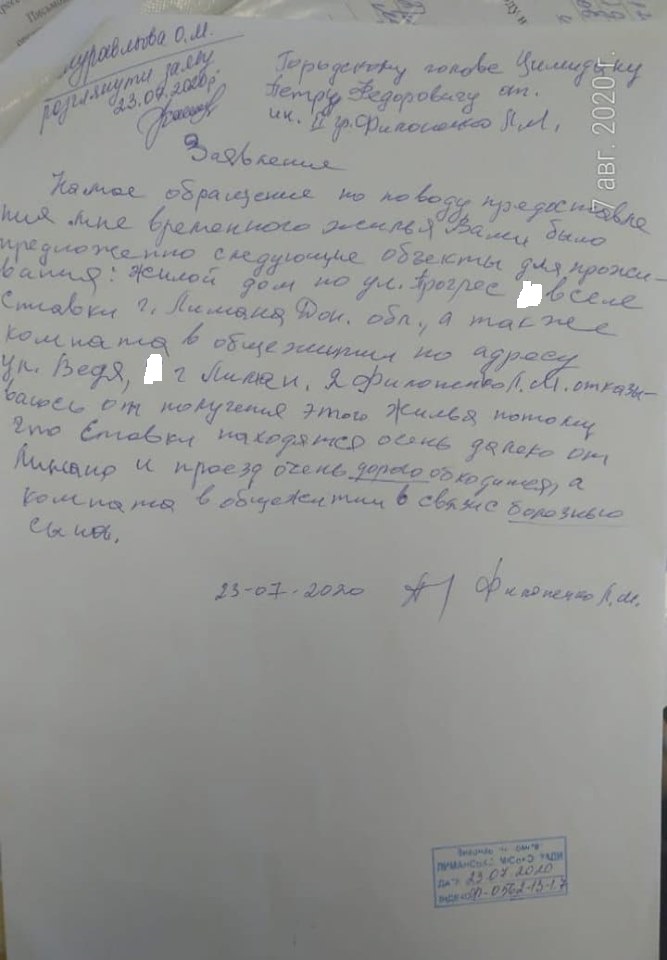 Муравльова О.М.
розглянути заяву
23.07.2020р.
Городскому голове Цимидану
Петру Федоровичу от.
ин. II гр. Филоненко Л.М.
Заявление
На мое обращение по поводу предоставле
ния мне временного жилья Вами было
предложенно следующие объекты для прожи-
вания: жилой дом по ул. Прогрес в селе
Ставки г. Лимана Дон. обл., а также
комната в общежитии по адресу
ул. Ведя, г Лиман. Я Филоненко Л.М. отказы-
ваюсь от получения этого жилья потому
что Ставки находятся очень далеко от
Лимана и проезд очень дорого обходится, а
комната в общежитии в связи с болезнью
сына.
23-07-2020 Филоненко Л.М.
7 авг. 2020 г.
ЛИМАНСЬКОЇ МІСЬКОЇ РАДИ
ДАТА 23 07 2020
ІНДЕКС Ф-0562-13-17